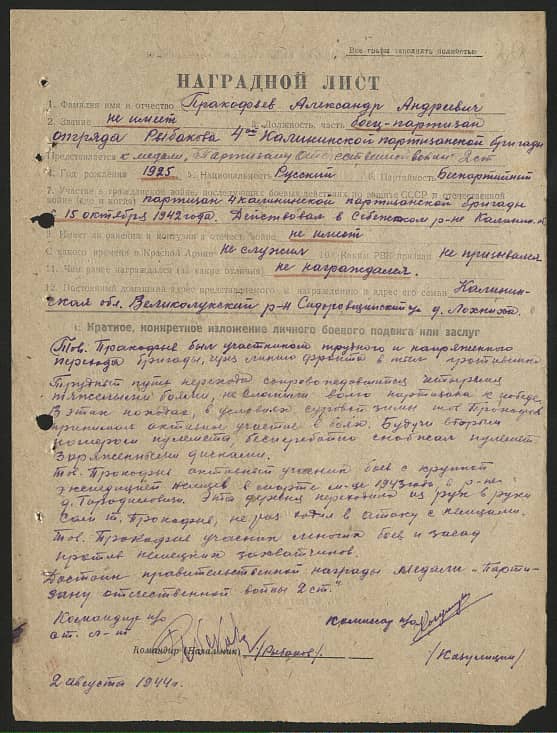 Все графы заполнять полностью
НАГРАДНОЙ ЛИСТ
1. Фамилия имя и отчество Пракофьев Александр Андреевич
2. Звание не имеет 3. Должность, часть боец-партизан
отряда Рыбакова 4ой Калининской партизанской бригады
Представляется к медали „Партизану Отечественной войны" 2 ст
4. Год рождения 1925 5. Национальность Русский 6. Партийность Беспартийный
7. Участие в гражданской войне, последующих боевых действиях по защите СССР и отечественной
войне (где и когда) партизан 4 калининской партизанской бригады
с 15 октября 1942 года. Действовал в Себежском р-не Калинин. об
8. Имеет ли ранения и контузии в отечеств. войне не имеет
С какого времени в Красной Армии не служил 10. Каким РВК призван не призывался
11. Чем ранее награждался (за какие отличия) не награждался.
12. Постоянный домашний адрес представляемого к награждению и адрес его семьи Калинин-
ская обл. Великолукский р-н Сидоровщинский д. Лохниха
1. Краткое, конкретное изложение личного боевого подвига или заслуг
Тов. Пракофьев был участником трудного и напряженного
перехода бригады, через линию фронта в тыл противника
Трудный путь перехода сопровождавшийся четырьмя
тяжелыми боями, не сломили волю партизана к победе.
В этих походах, в условиях суровой зимы тов Прокофьев
принимал активное участие в боях. Будучи вторым
номером пулемета, бесперебойно снабжал пулемет
заряженными дисками.
Тов. Прокофьев активный участник боев с крупной
экспедицией немцев в марте м-це 1943 года в р-не
д. Городиловичи. Эта деревня переходила из рук в руки
Сам т. Прокофьев, не раз ходил в атаку с немцами.
Тов. Прокофьев участник многих боев и засад
против немецких захватчиков.
Достоин правительственной награды медали „Парти-
зану отечественной войны 2 ст."
Командир п/о
ст. л-т
Комиссар п/о
Командир (Начальник) /Рыбаков/
2 августа 1944 г.